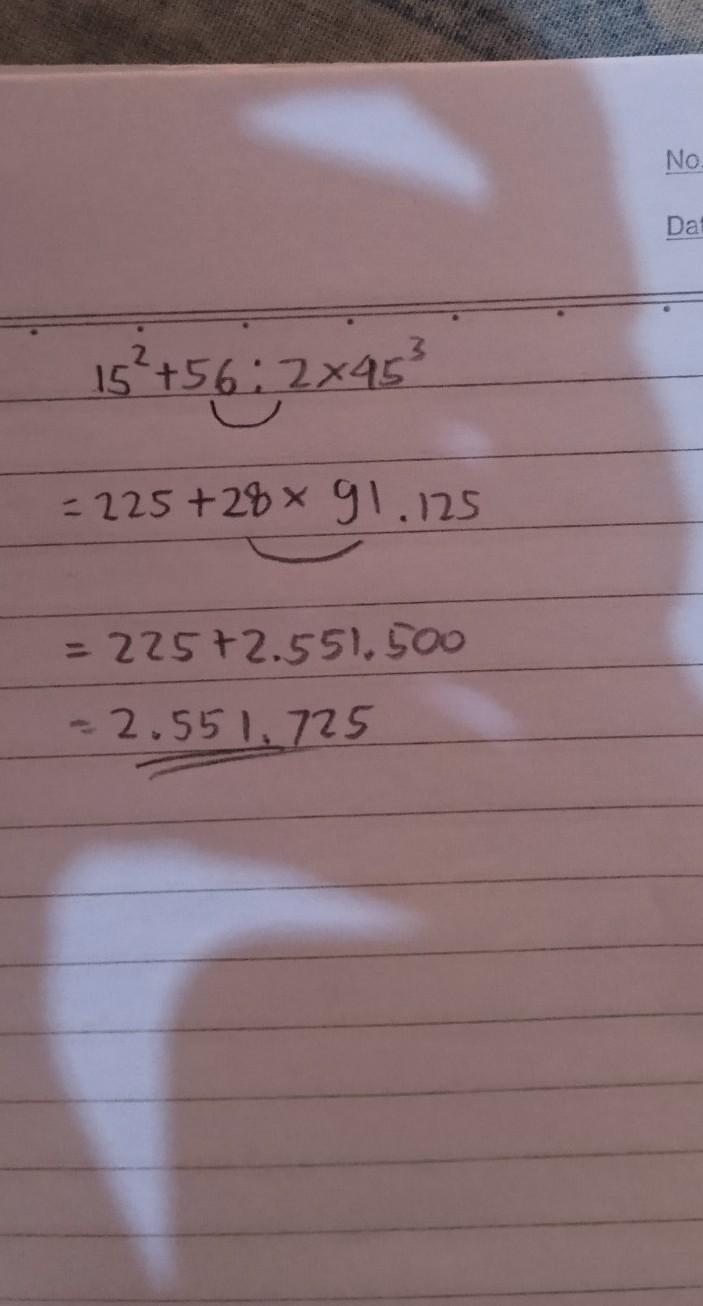 No.
Dat
15²+56:2×45³
=225+28× 91.125
=225+2.551.500
=2.551.725